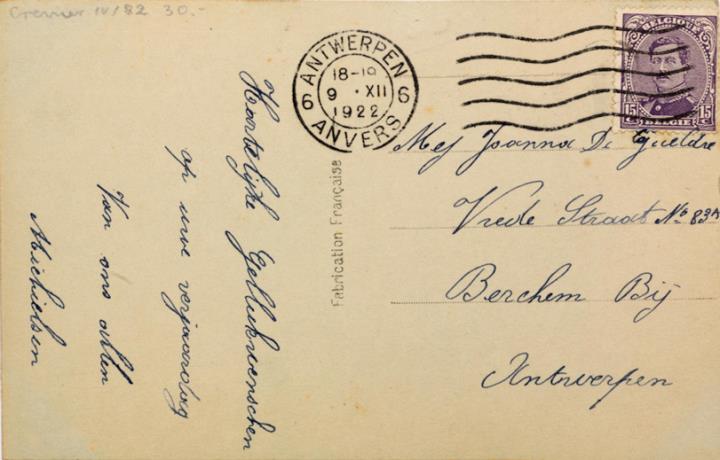 Crevier IV/82 30.-
ANTWERPEN
18-19
9 • XII
1922
6 6
ANVERS
BELGIQUE
15 C 15 C
BELGIË
Fabrication Française
Hartelijke Gellukwenschen
op uwe verjaardag
Van ons allen
Michielsen
Mej Joanna De Gueldre
Vrede Straat No 83A
Berchem Bij
Antwerpen